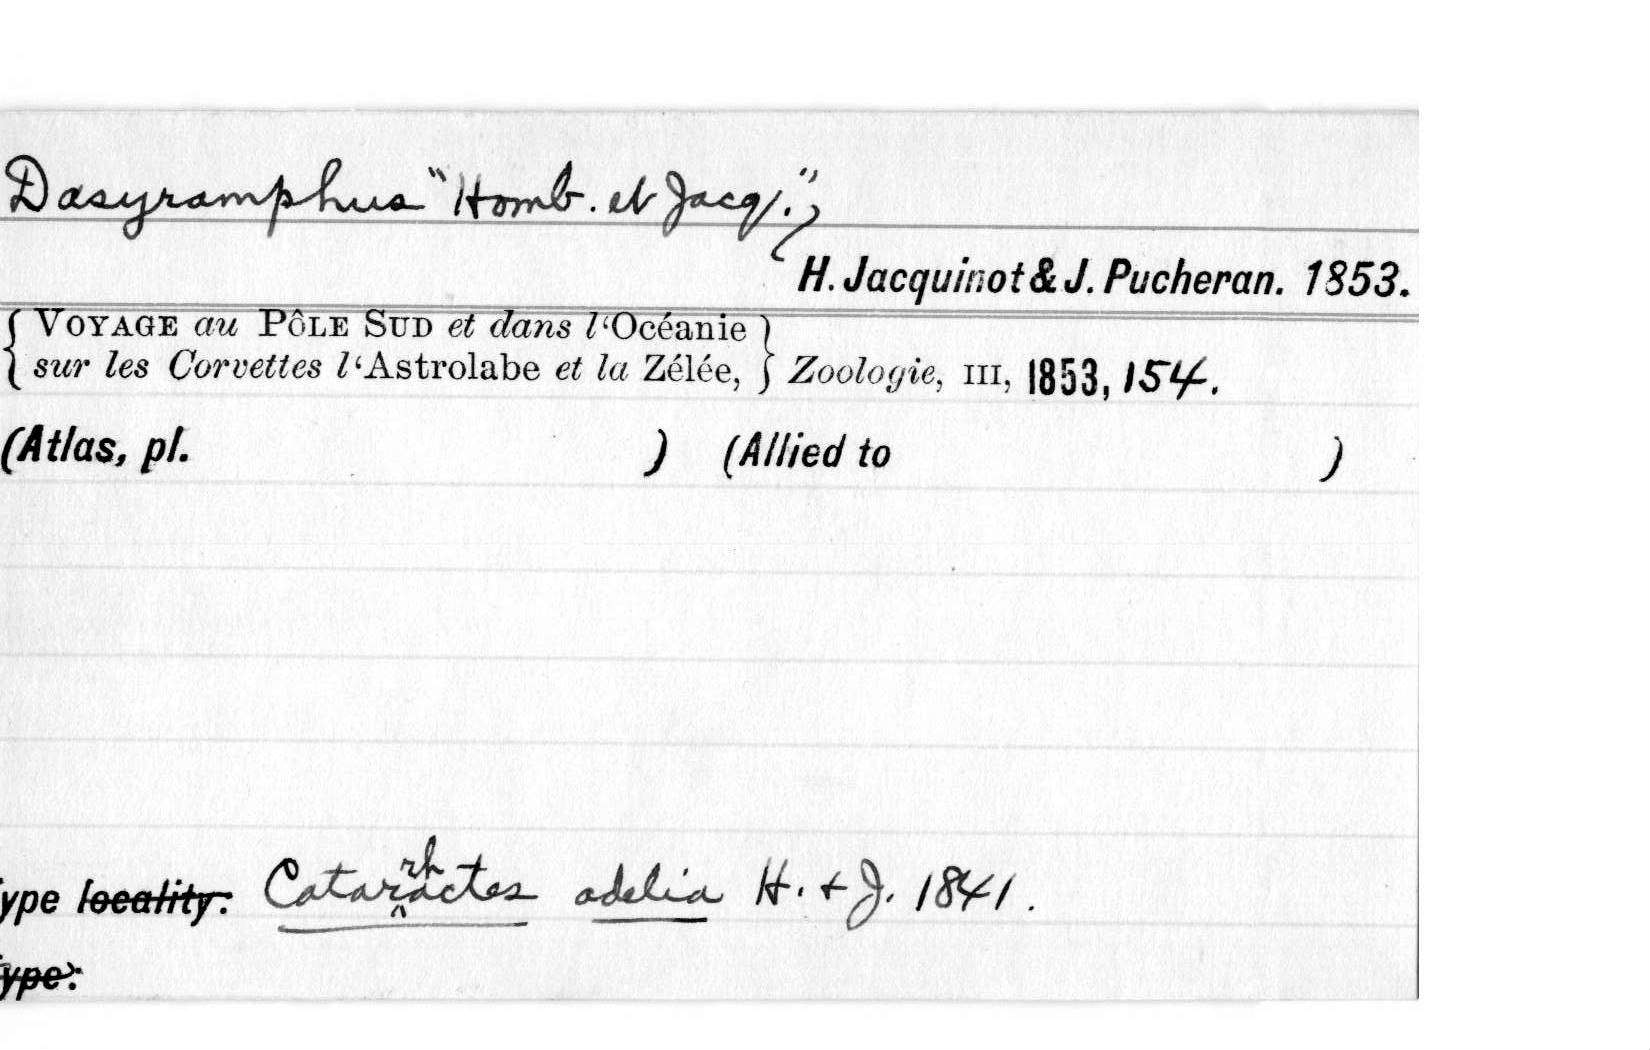 Dasyramphus "Homb. et Jacq.",
H. Jacquinot & J. Pucheran. 1853.
{ VOYAGE au PÔLE SUD et dans l'Océanie }
{ sur les Corvettes l'Astrolabe et la Zélée, } Zoologie, III, 1853, 154.
(Atlas, pl. ) (Allied to )
ype locality: Catarrhactes adelia H. + J. 1841.
ype: